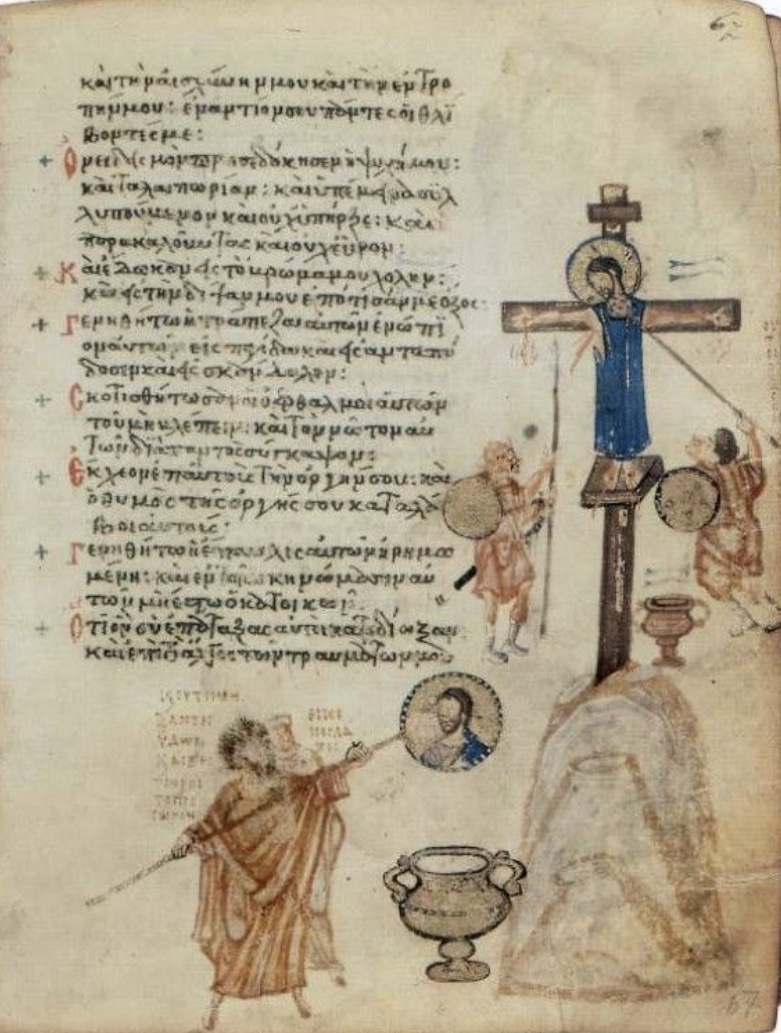 καὶ τὴν αἰσχύνην μου καὶ τὴν ἐντρο
πήν μου: ἐναντίον σου πάντες οἱ θλί
βοντές με:
Ὀνειδισμὸν προσεδόκησεν ἡ ψυχή μου:
καὶ ταλαιπωρίαν: καὶ ὑπέμεινα συλ
λυπούμενον καὶ οὐχ ὑπῆρξε: καὶ
παρακαλοῦντας καὶ οὐχ εὗρον:
Καὶ ἔδωκαν εἰς τὸ βρῶμα μου χολὴν:
καὶ εἰς τὴν δίψαν μου ἐπότισάν με ὄξος
Γενηθήτω ἡ τράπεζα αὐτῶν ἐνώπι
ον αὐτῶν εἰς παγίδα καὶ εἰς ἀνταπό
δοσιν καὶ εἰς σκάνδαλον:
Σκοτισθήτωσαν οἱ ὀφθαλμοὶ αὐτῶν
τοῦ μὴ βλέπειν: καὶ τὸν νῶτον αὐ
τῶν διὰ παντὸς σύγκαμψον:
Ἔκχεον ἐπ' αὐτοὺς τὴν ὀργήν σου: καὶ
ὁ θυμὸς τῆς ὀργῆς σου καταλά
βοι αὐτούς:
Γενηθήτω ἡ ἔπαυλις αὐτῶν ἠρημω
μένη: καὶ ἐν τοῖς σκηνώμασιν αὐ
τῶν μὴ ἔστω ὁ κατοικῶν:
Ὅτι ὃν σὺ ἐπάταξας αὐτοὶ κατεδίωξαν
καὶ ἐπὶ τὸ ἄλγος τῶν τραυμάτων μου
67